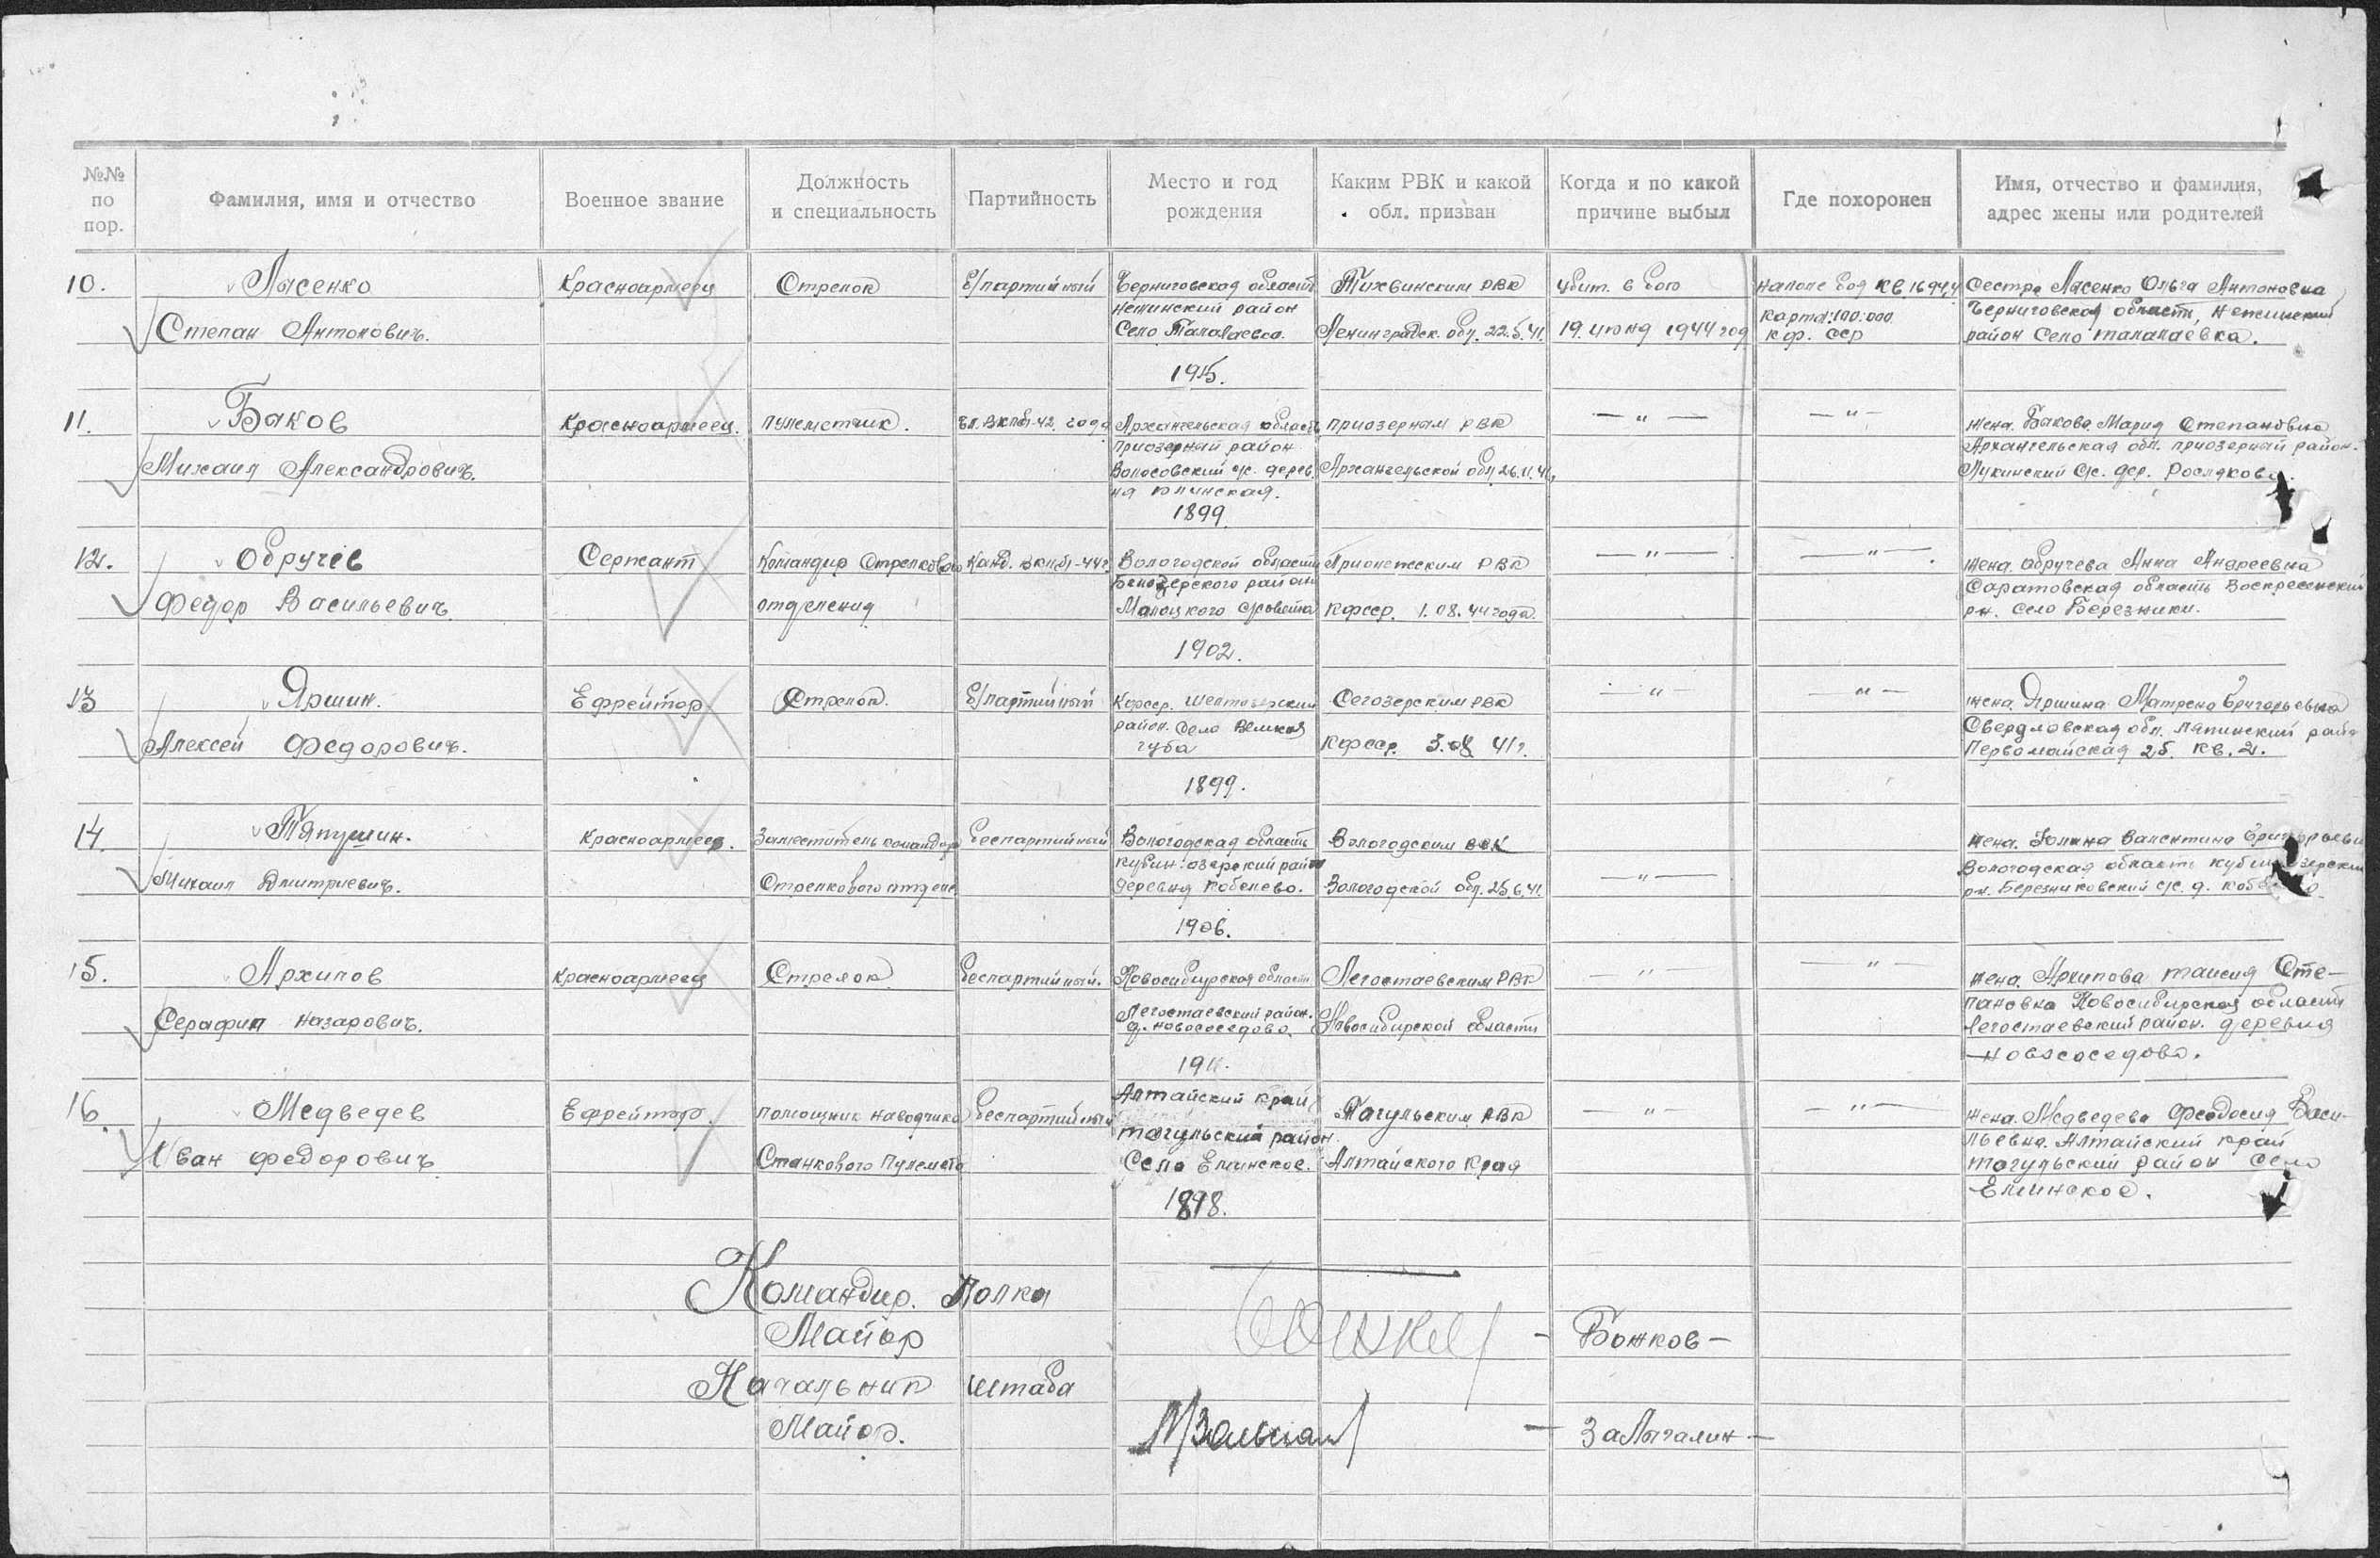 №№ по пор.
Фамилия, имя и отчество
Военное звание
Должность и специальность
Партийность
Место и год рождения
Каким РВК и какой обл. призван
Когда и по какой причине выбыл
Где похоронен
Имя, отчество и фамилия, адрес жены или родителей
10.
Лысенко
Степан Антонович.
Красноармеец
Стрелок
Б/партийный
Черниговская область
Нежинский район
Село Талалаевка.
1915.
Тихвинским РВК
Ленинградск. обл. 22.5.41.
Убит в бою
19. июня 1944 год
на поле боя кв. 1694,4
карта: 100.000
К.ф. ССР
Сестра Лысенко Ольга Антоновна
Черниговская область, Нежинский
район Село Талалаевка.
11.
Баков
Михаил Александрович.
Красноармеец.
пулеметчик.
чл. ВКПб-42. года
Архангельская область
приозерный район
Волосовский с/с. дерев
ня
1899.
приозерным РВК
Архангельской обл 26.11.41.
— " —
— " —
жена. Бакова Мария Степановна
Архангельская обл. приозерный район.
Лукинский с/с. дер. Рослякова.
12.
Обручев
Федор Васильевич
Сержант
Командир Стрелкового
отделения
Канд. ВКПб-44г.
Вологодской области
Белозерского района
с/совета
1902.
Прионежским РВК
КФССР. 1.08.44 года.
— " —
— " —
жена. Обручева Анна Андреевна
Саратовская область Воскресенский
рн. село Березники.
13
Яршин.
Алексей Федорович.
Ефрейтор
Стрелок.
Б/партийный
Кфсср. Шелтозерский
район. Село Великая
губа
1899.
Сегозерским РВК
КФССР. 3.08 41г.
— " —
— " —
жена Яршина Матрена Григорьевна
Свердловская обл. район
Первомайская 25. кв. 2.
14.
Тяпушин.
Михаил Дмитриевич.
Красноармеец.
Заместитель командира
Стрелкового отделе.
беспартийный
Вологодская область
Кубин-озерский район
деревня Кобелево.
1906.
Вологодским РВК
Вологодской обл. 25.6.41.
— " —
жена. Валентина Григорьевн
Вологодская область Кубиноозерский
рн. Березниковский с/с. д.
15.
Архипов
Серафим Назарович.
Красноармеец
Стрелок
беспартийный.
Новосибирская область
Легостаевский район.
д. Новососедово
Легостаевским РВК
Новосибирской области
— " —
— " —
жена. Архипова Таисия Сте-
пановна Новосибирская область
Легостаевский район. деревня
Новососедово.
16.
Медведев
Иван Федорович
Ефрейтор.
помощник наводчика
Станкового Пулемета
беспартийный
Алтайский край
тогульский район.
Село Елинское.
1898.
Тагульским РВК
Алтайского края
— " —
— " —
жена. Медведева Феодосия Васи-
льевна. Алтайский край
тогульский район село
Елинское.
Командир. Полка
Майор
— Божков —
Начальник штаба
Майор.
— Залыгалин —